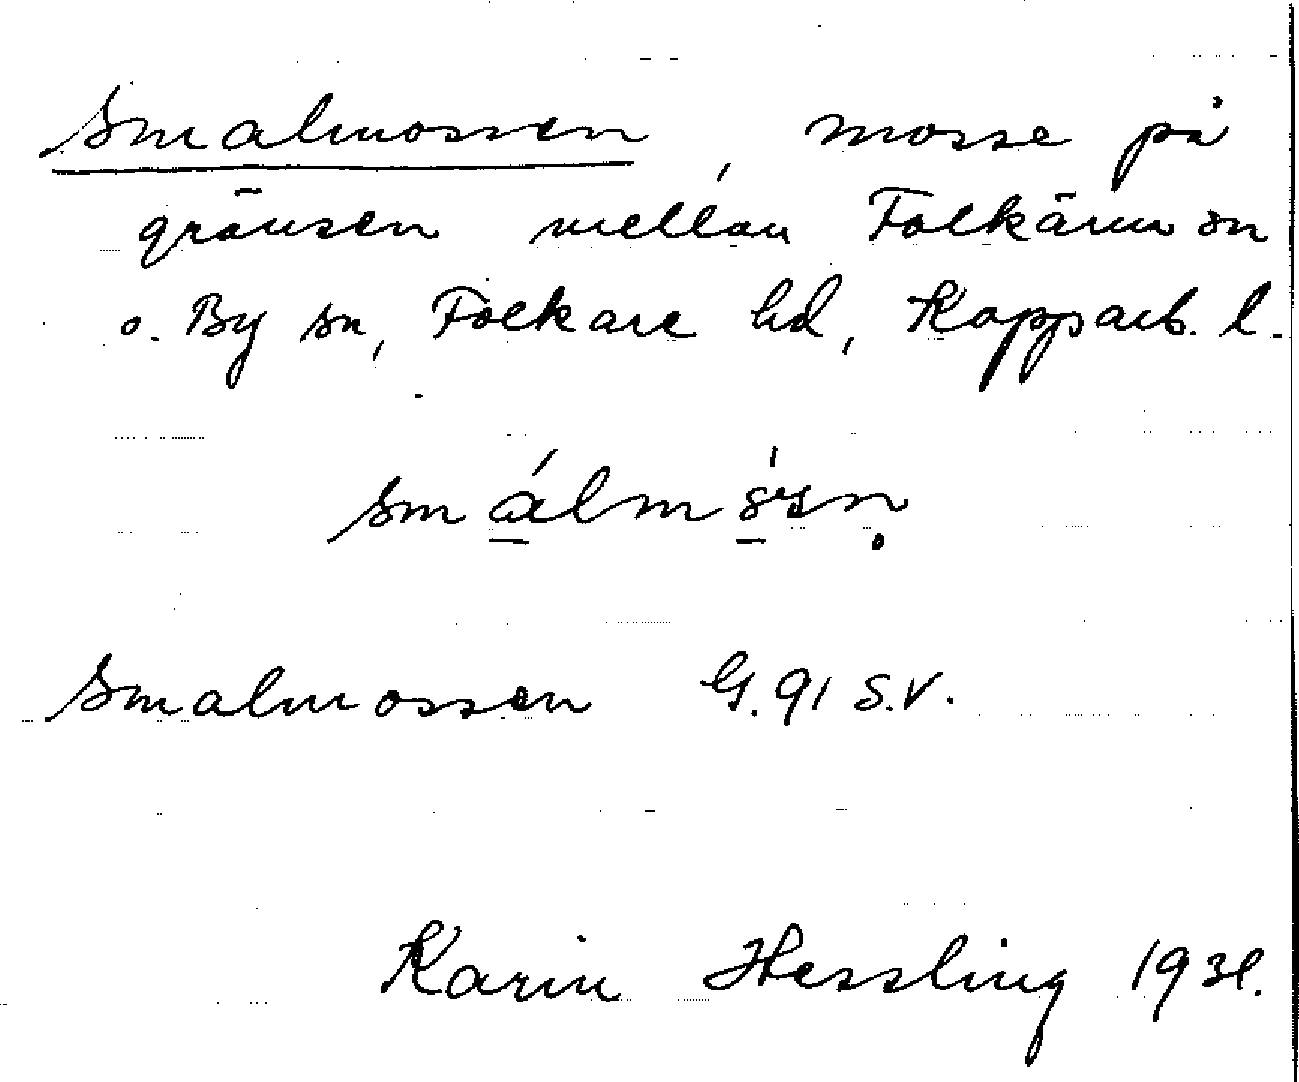 Smalmossen, mosse på
gränsen mellan Folkärna sn
o. By sn, Folkare hd, Kopparb. l.
Smalmossen G. 91 S.V.
Karin Hessling 1931.